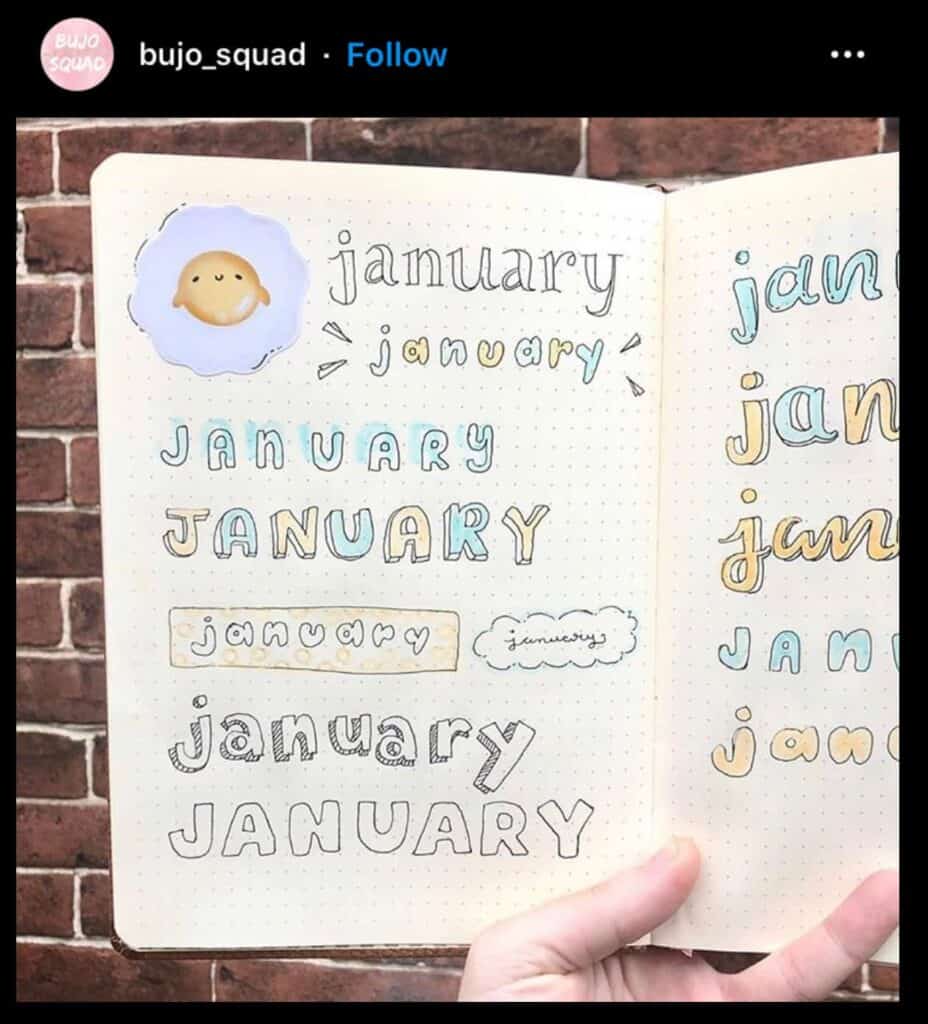 BUJO
SQUAD
bujo_squad · Follow
january
january
JANUARY
JANUARY
january
january
january
JANUARY
jan
jan
jan
JAN
jan